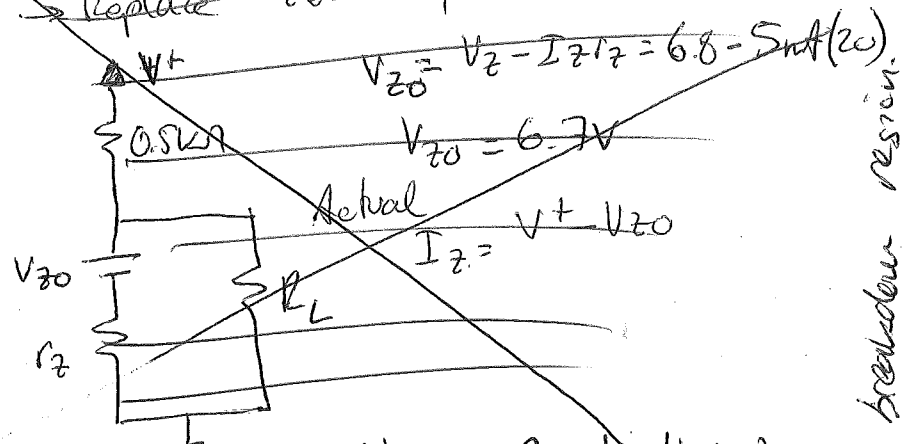 → Replace
V+
V_Z0 = V_Z - I_Z r_Z = 6.8 - 5mA(20)
0.5KΩ
V_Z0 = 6.7V
Actual
I_Z = V+ - V_Z0
V_Z0
R_L
r_Z
breakdown region.